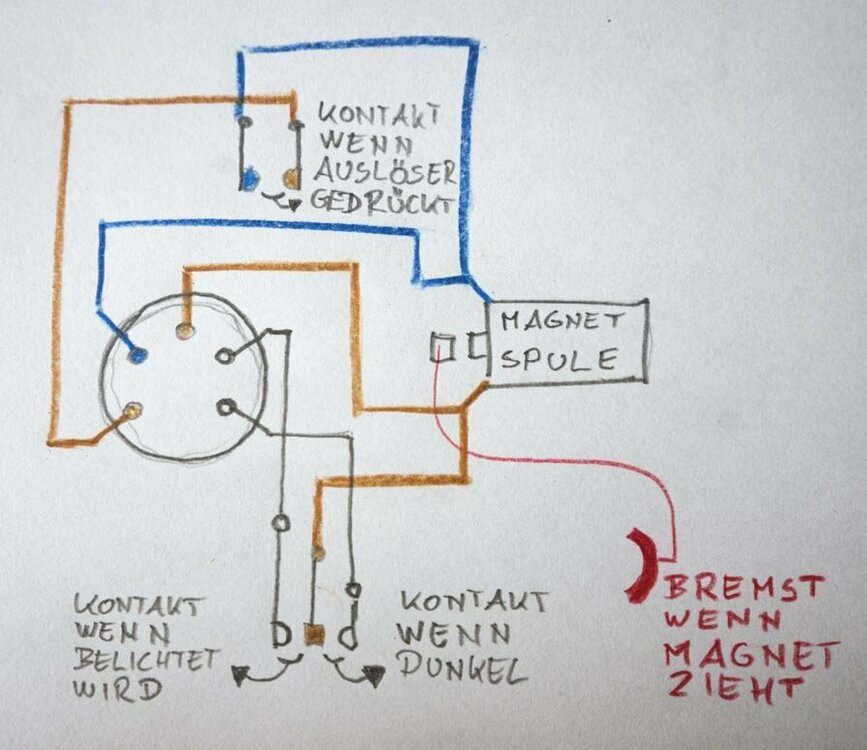 KONTAKT
WENN
AUSLÖSER
GEDRÜCKT
MAGNET
SPULE
KONTAKT
WENN
BELICHTET
WIRD
KONTAKT
WENN
DUNKEL
BREMST
WENN
MAGNET
ZIEHT